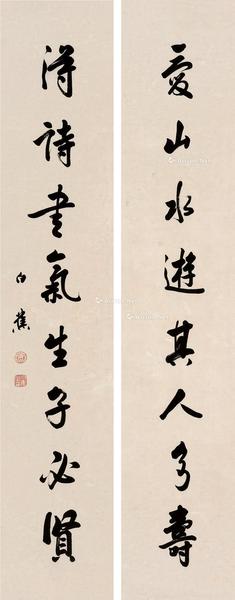 愛山水遊其人多壽
得詩書氣生子必賢
白蕉